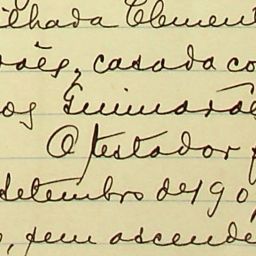 ilhada Clement
rães, casada co
os Guimarãe
O testador f
setembro de 190
, sem ascende